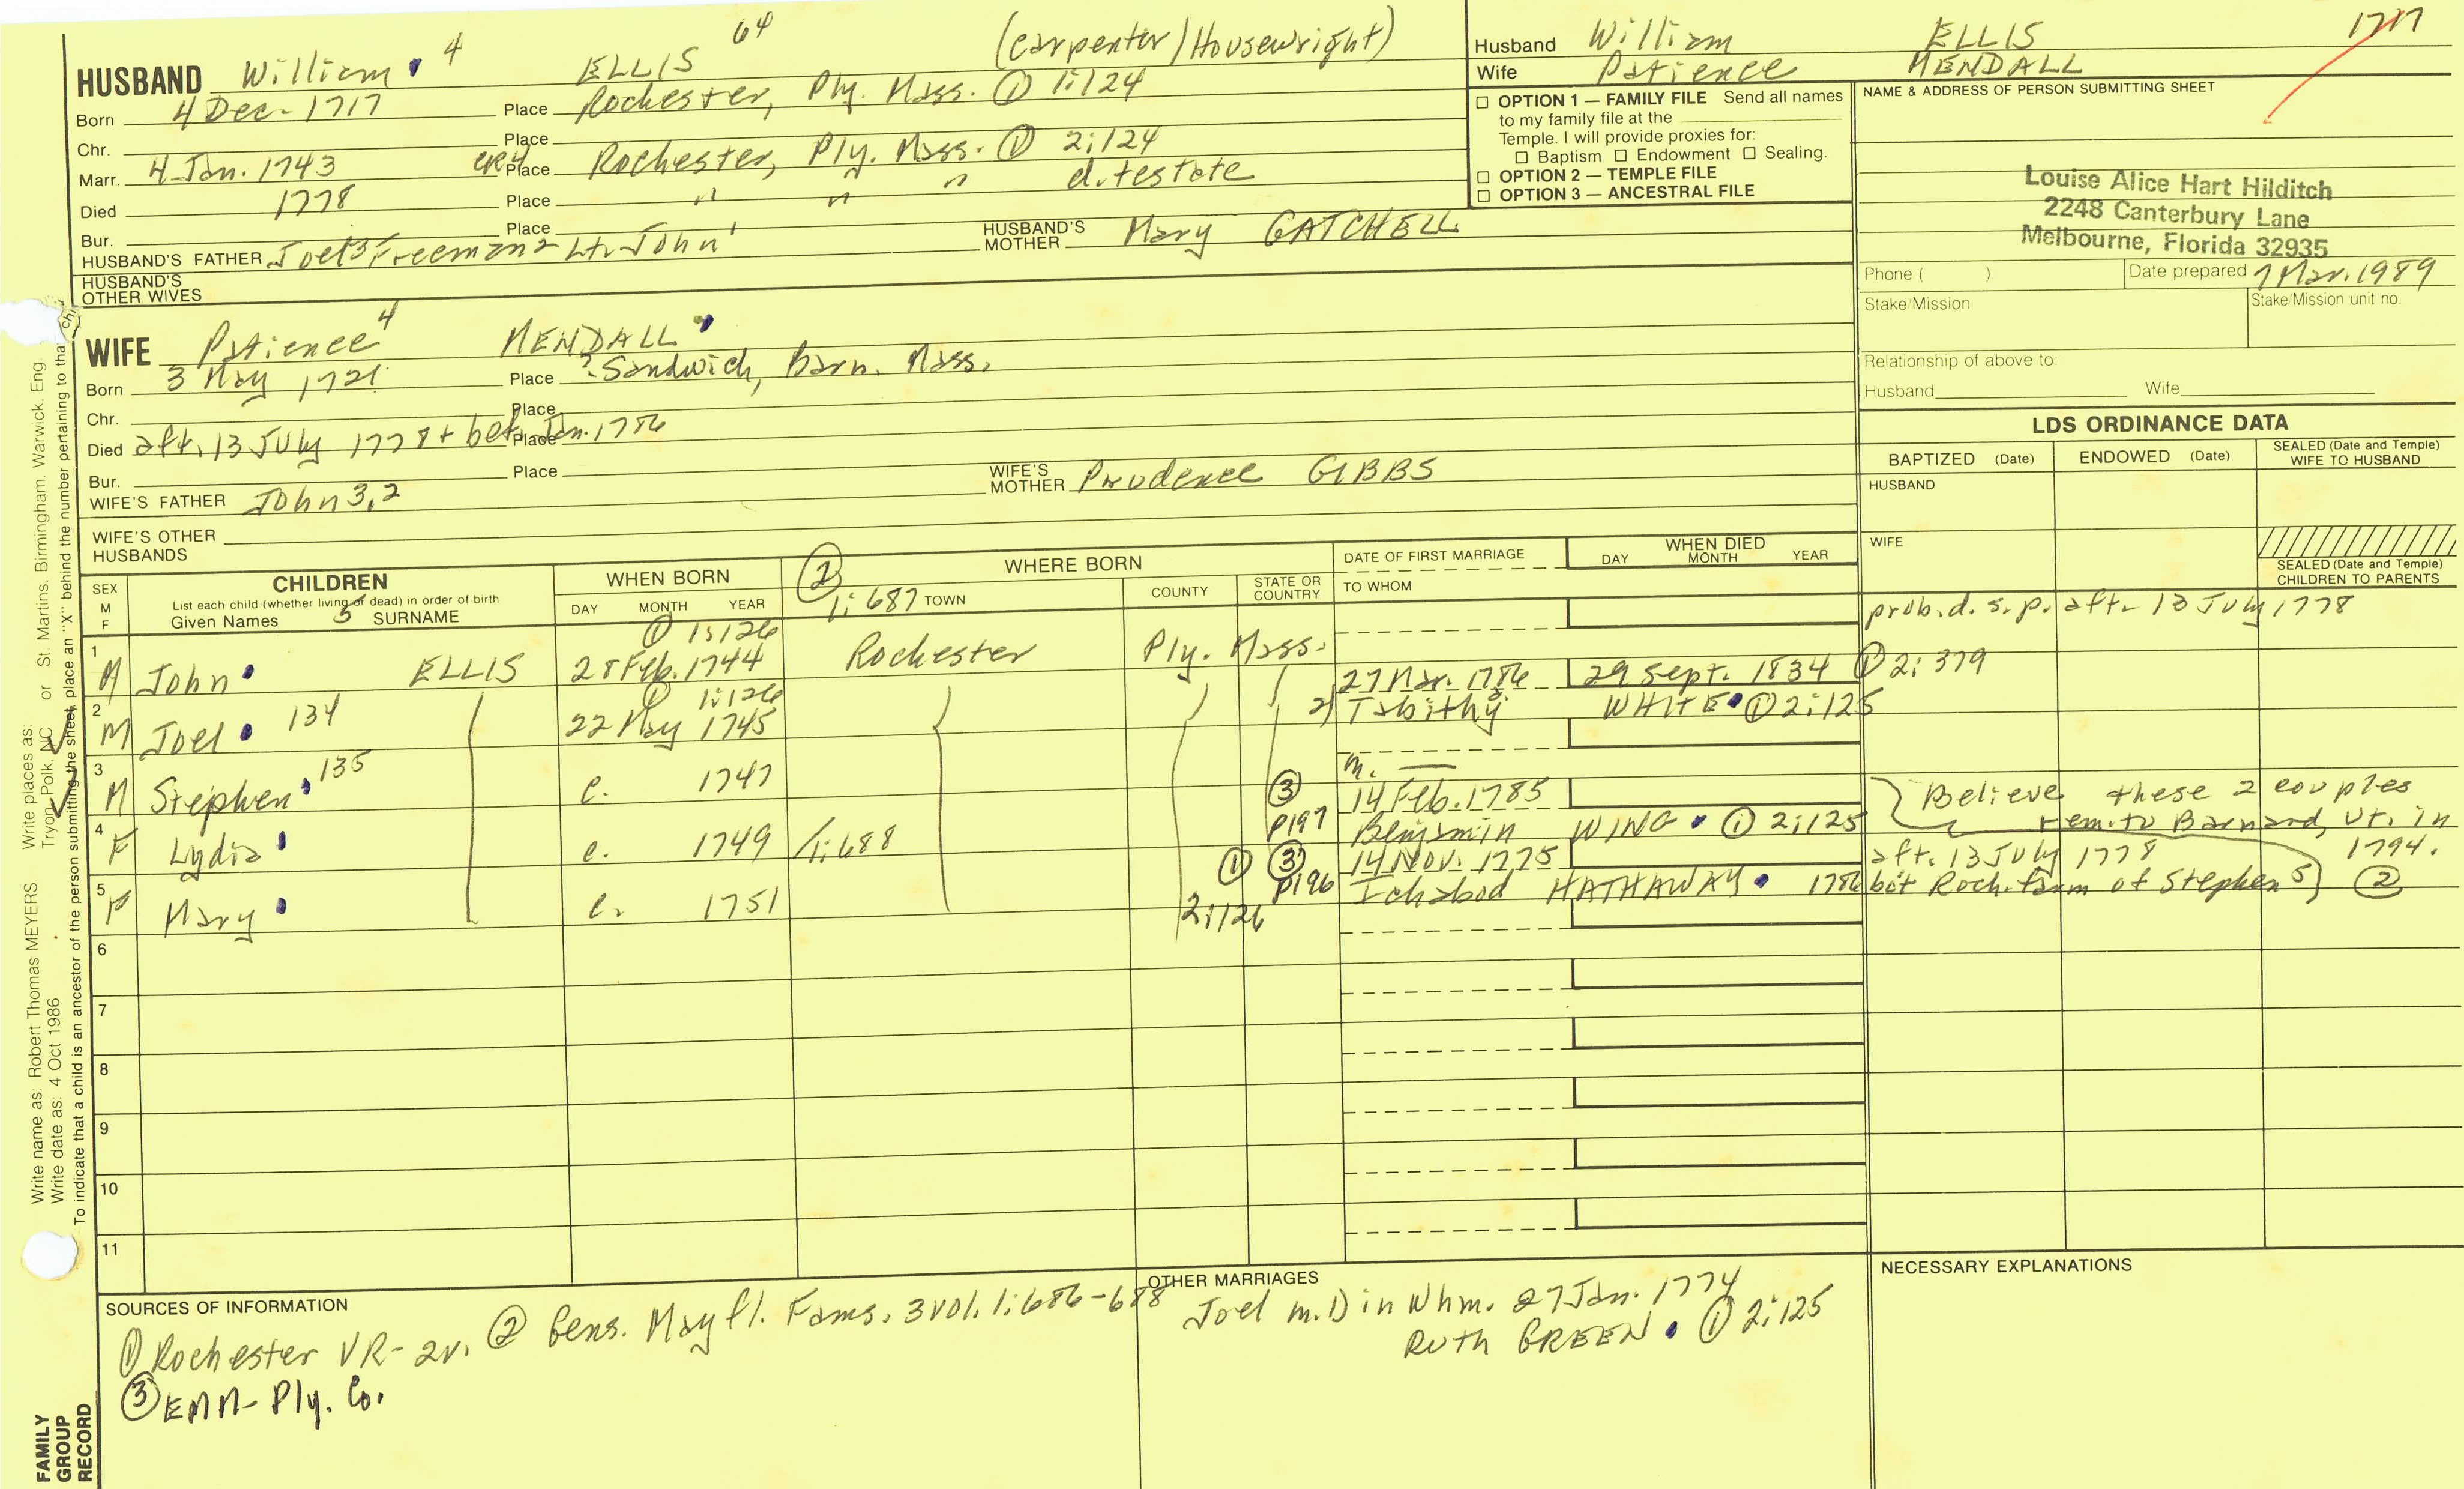 HUSBAND William 4 ELLIS 64 (Carpenter/Housewright)
Born 4 Dec. 1717 Place Rochester, Ply. Mass. ① 1:124
Chr. Place
Marr. 4 Jan. 1743 Place Rochester, Ply. Mass. ① 2:124
Died 1778 Place " " " d. testate
Bur. Place
HUSBAND'S FATHER Joel3 Freeman2 Lt. John1 HUSBAND'S MOTHER Mary GATCHELL
HUSBAND'S OTHER WIVES
WIFE Patience4 MENDALL
Born 3 May 1721 Place ?Sandwich, Barn. Mass.
Chr. Place
Died aft. 13 July 1778 + bef. Jan. 1786 Place
Bur. Place
WIFE'S FATHER John 3,2 WIFE'S MOTHER Prudence GIBBS
WIFE'S OTHER HUSBANDS
Husband William ELLIS 1717
Wife Patience MENDALL
☐ OPTION 1 — FAMILY FILE Send all names
to my family file at the
Temple. I will provide proxies for:
☐ Baptism ☐ Endowment ☐ Sealing.
☐ OPTION 2 — TEMPLE FILE
☐ OPTION 3 — ANCESTRAL FILE
NAME & ADDRESS OF PERSON SUBMITTING SHEET
Louise Alice Hart Hilditch
2248 Canterbury Lane
Melbourne, Florida 32935
Phone ( ) Date prepared 7 Mar. 1989
Stake/Mission Stake/Mission unit no.
Relationship of above to:
Husband Wife
LDS ORDINANCE DATA
BAPTIZED (Date) ENDOWED (Date) SEALED (Date and Temple) WIFE TO HUSBAND
HUSBAND
WIFE
SEALED (Date and Temple) CHILDREN TO PARENTS
SEX M F
CHILDREN
List each child (whether living or dead) in order of birth
Given Names 5 SURNAME
WHEN BORN
DAY MONTH YEAR
② 1:687
WHERE BORN
TOWN COUNTY STATE OR COUNTRY
DATE OF FIRST MARRIAGE
TO WHOM
WHEN DIED
DAY MONTH YEAR
1 M John ELLIS ① 1:126 28 Feb. 1744 Rochester Ply. Mass. prob. d. s.p. aft. 13 July 1778
2 M Joel 134 ① 1:126 22 May 1745 27 Mar. 1786 29 Sept. 1834 ① 2:379
2) Tabithy WHITE ① 2:125
3 M Stephen 135 c. 1747 m. —
4 F Lydia c. 1749 1:688 ③ p197 14 Feb. 1785
Benjamin WING ① 2:125
Believe these 2 couples
rem. to Barnard, Vt. in
1794.
5 F Mary c. 1751 ① 2:126 ③ p196 14 Nov. 1775 aft. 13 July 1778
Ichabod HATHAWAY 1786 bot Roch. farm of Stephen5 ②
6
7
8
9
10
11
SOURCES OF INFORMATION
① Rochester VR- 2v. ② Gens. Mayfl. Fams. 3 vol. 1:686-688
③ EMM- Ply. Co.
OTHER MARRIAGES
Joel m. 1) in Whm. 27 Jan. 1774
Ruth GREEN ① 2:125
NECESSARY EXPLANATIONS
Write name as: Robert Thomas MEYERS Write places as:
Write date as: 4 Oct 1986 Tryon, Polk, NC or St. Martins, Birmingham, Warwick, Eng
To indicate that a child is an ancestor of the person submitting the sheet, place an "X" behind the number pertaining to that
FAMILY
GROUP
RECORD